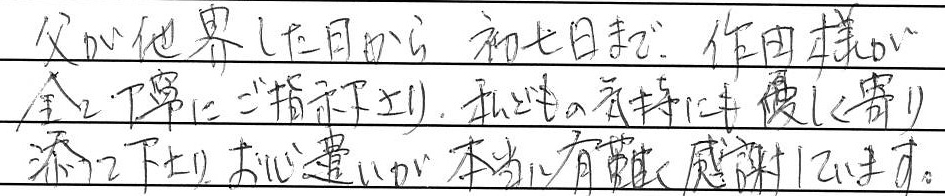 父が他界した日から 初七日まで、作田様が
全て丁寧にご指示下さり、私どもの気持にも優しく寄り
添って下さり、お心遣いが本当に有難く感謝しています。